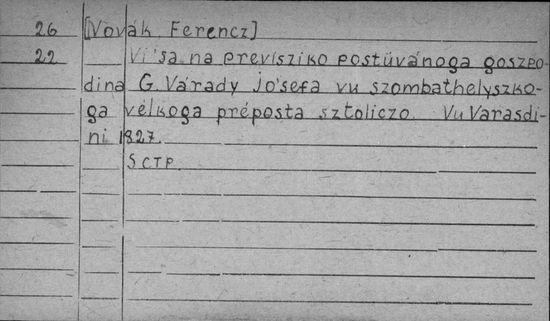 26 [Novák Ferencz]
22 Vi'sa na previsziko postüvánoga goszpo-
dina G. Várady Jo'sefa vu szombathelyszko-
ga vélkoga préposta sztoliczo. Vu Varasdi-
ni 1827.
5 CTP.